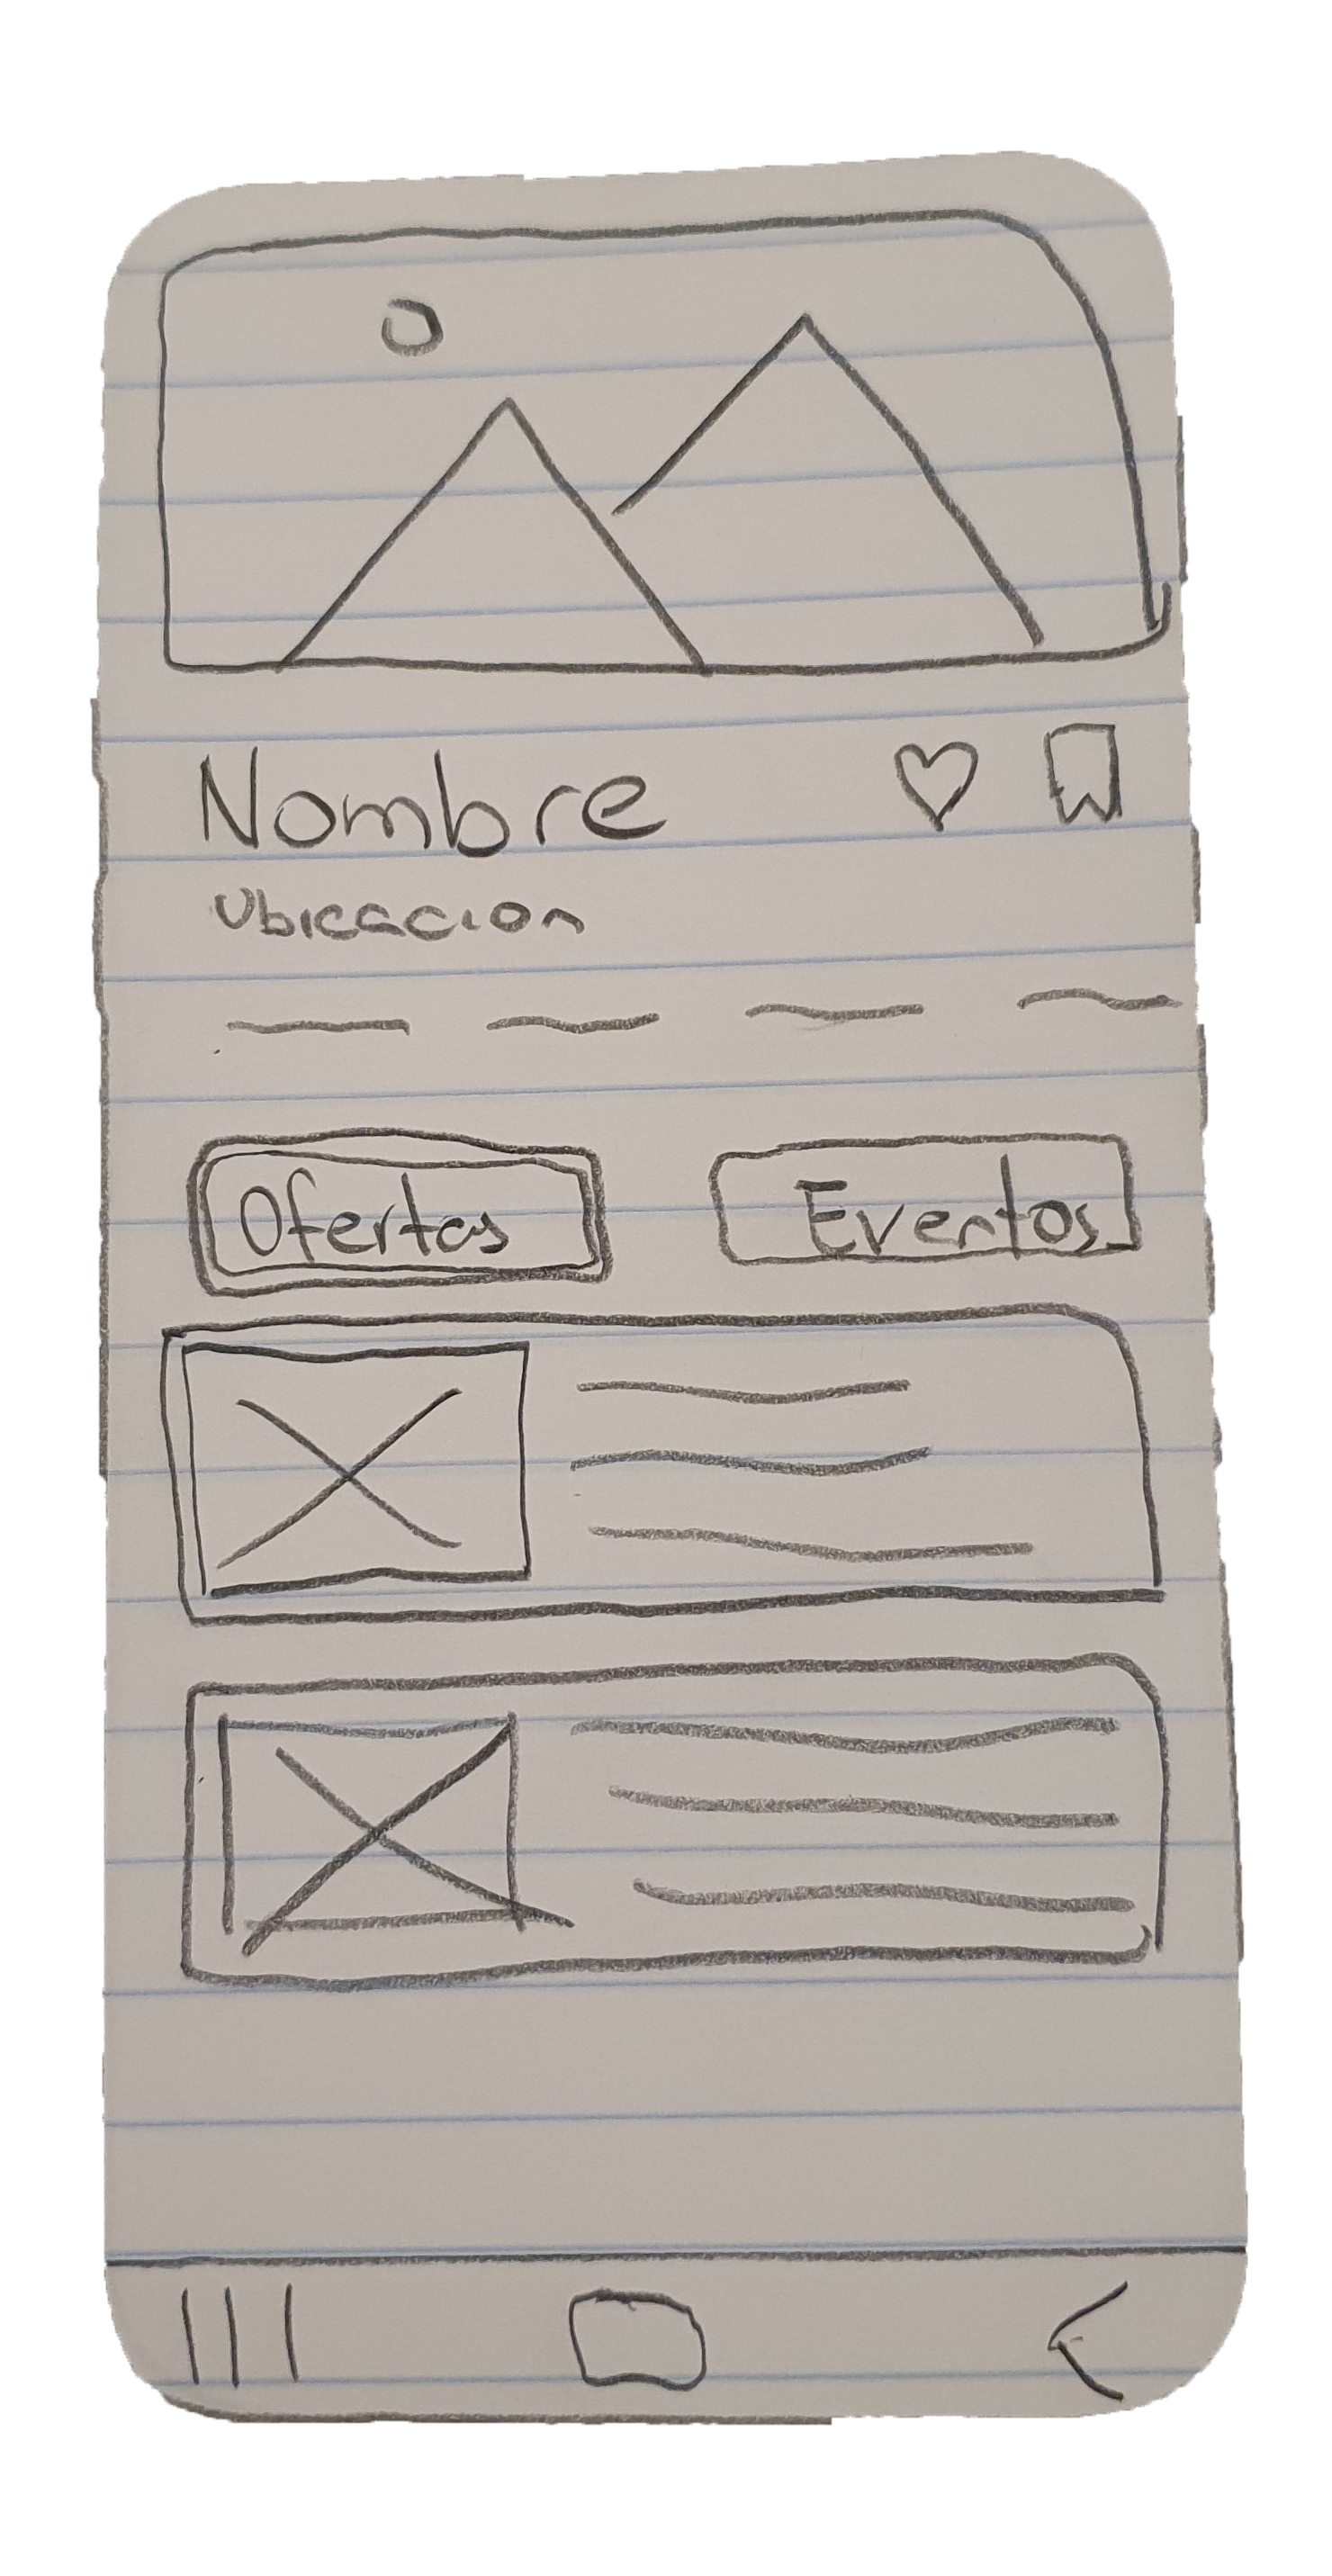 Nombre
Ubicacion
Ofertas
Eventos